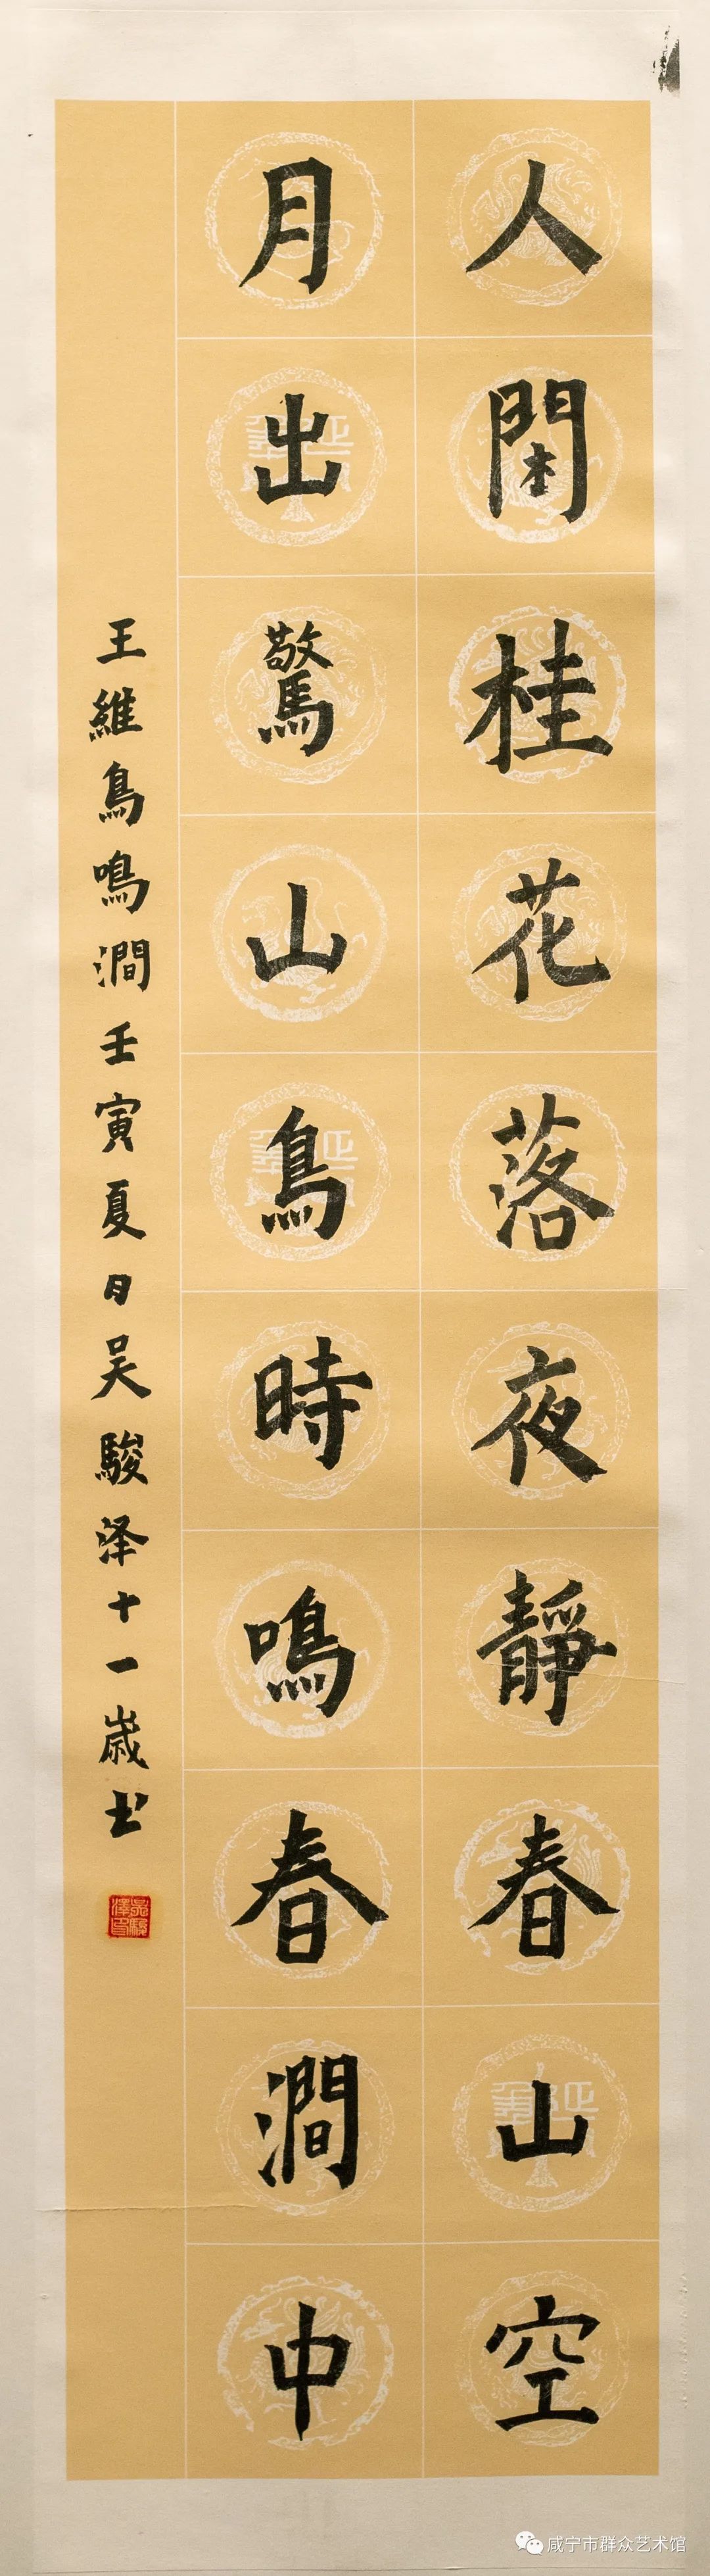 人閑桂花落夜靜春山空
月出驚山鳥時鳴春澗中
王維鳥鳴澗壬寅夏日吴駿泽十一歲书
咸宁市群众艺术馆